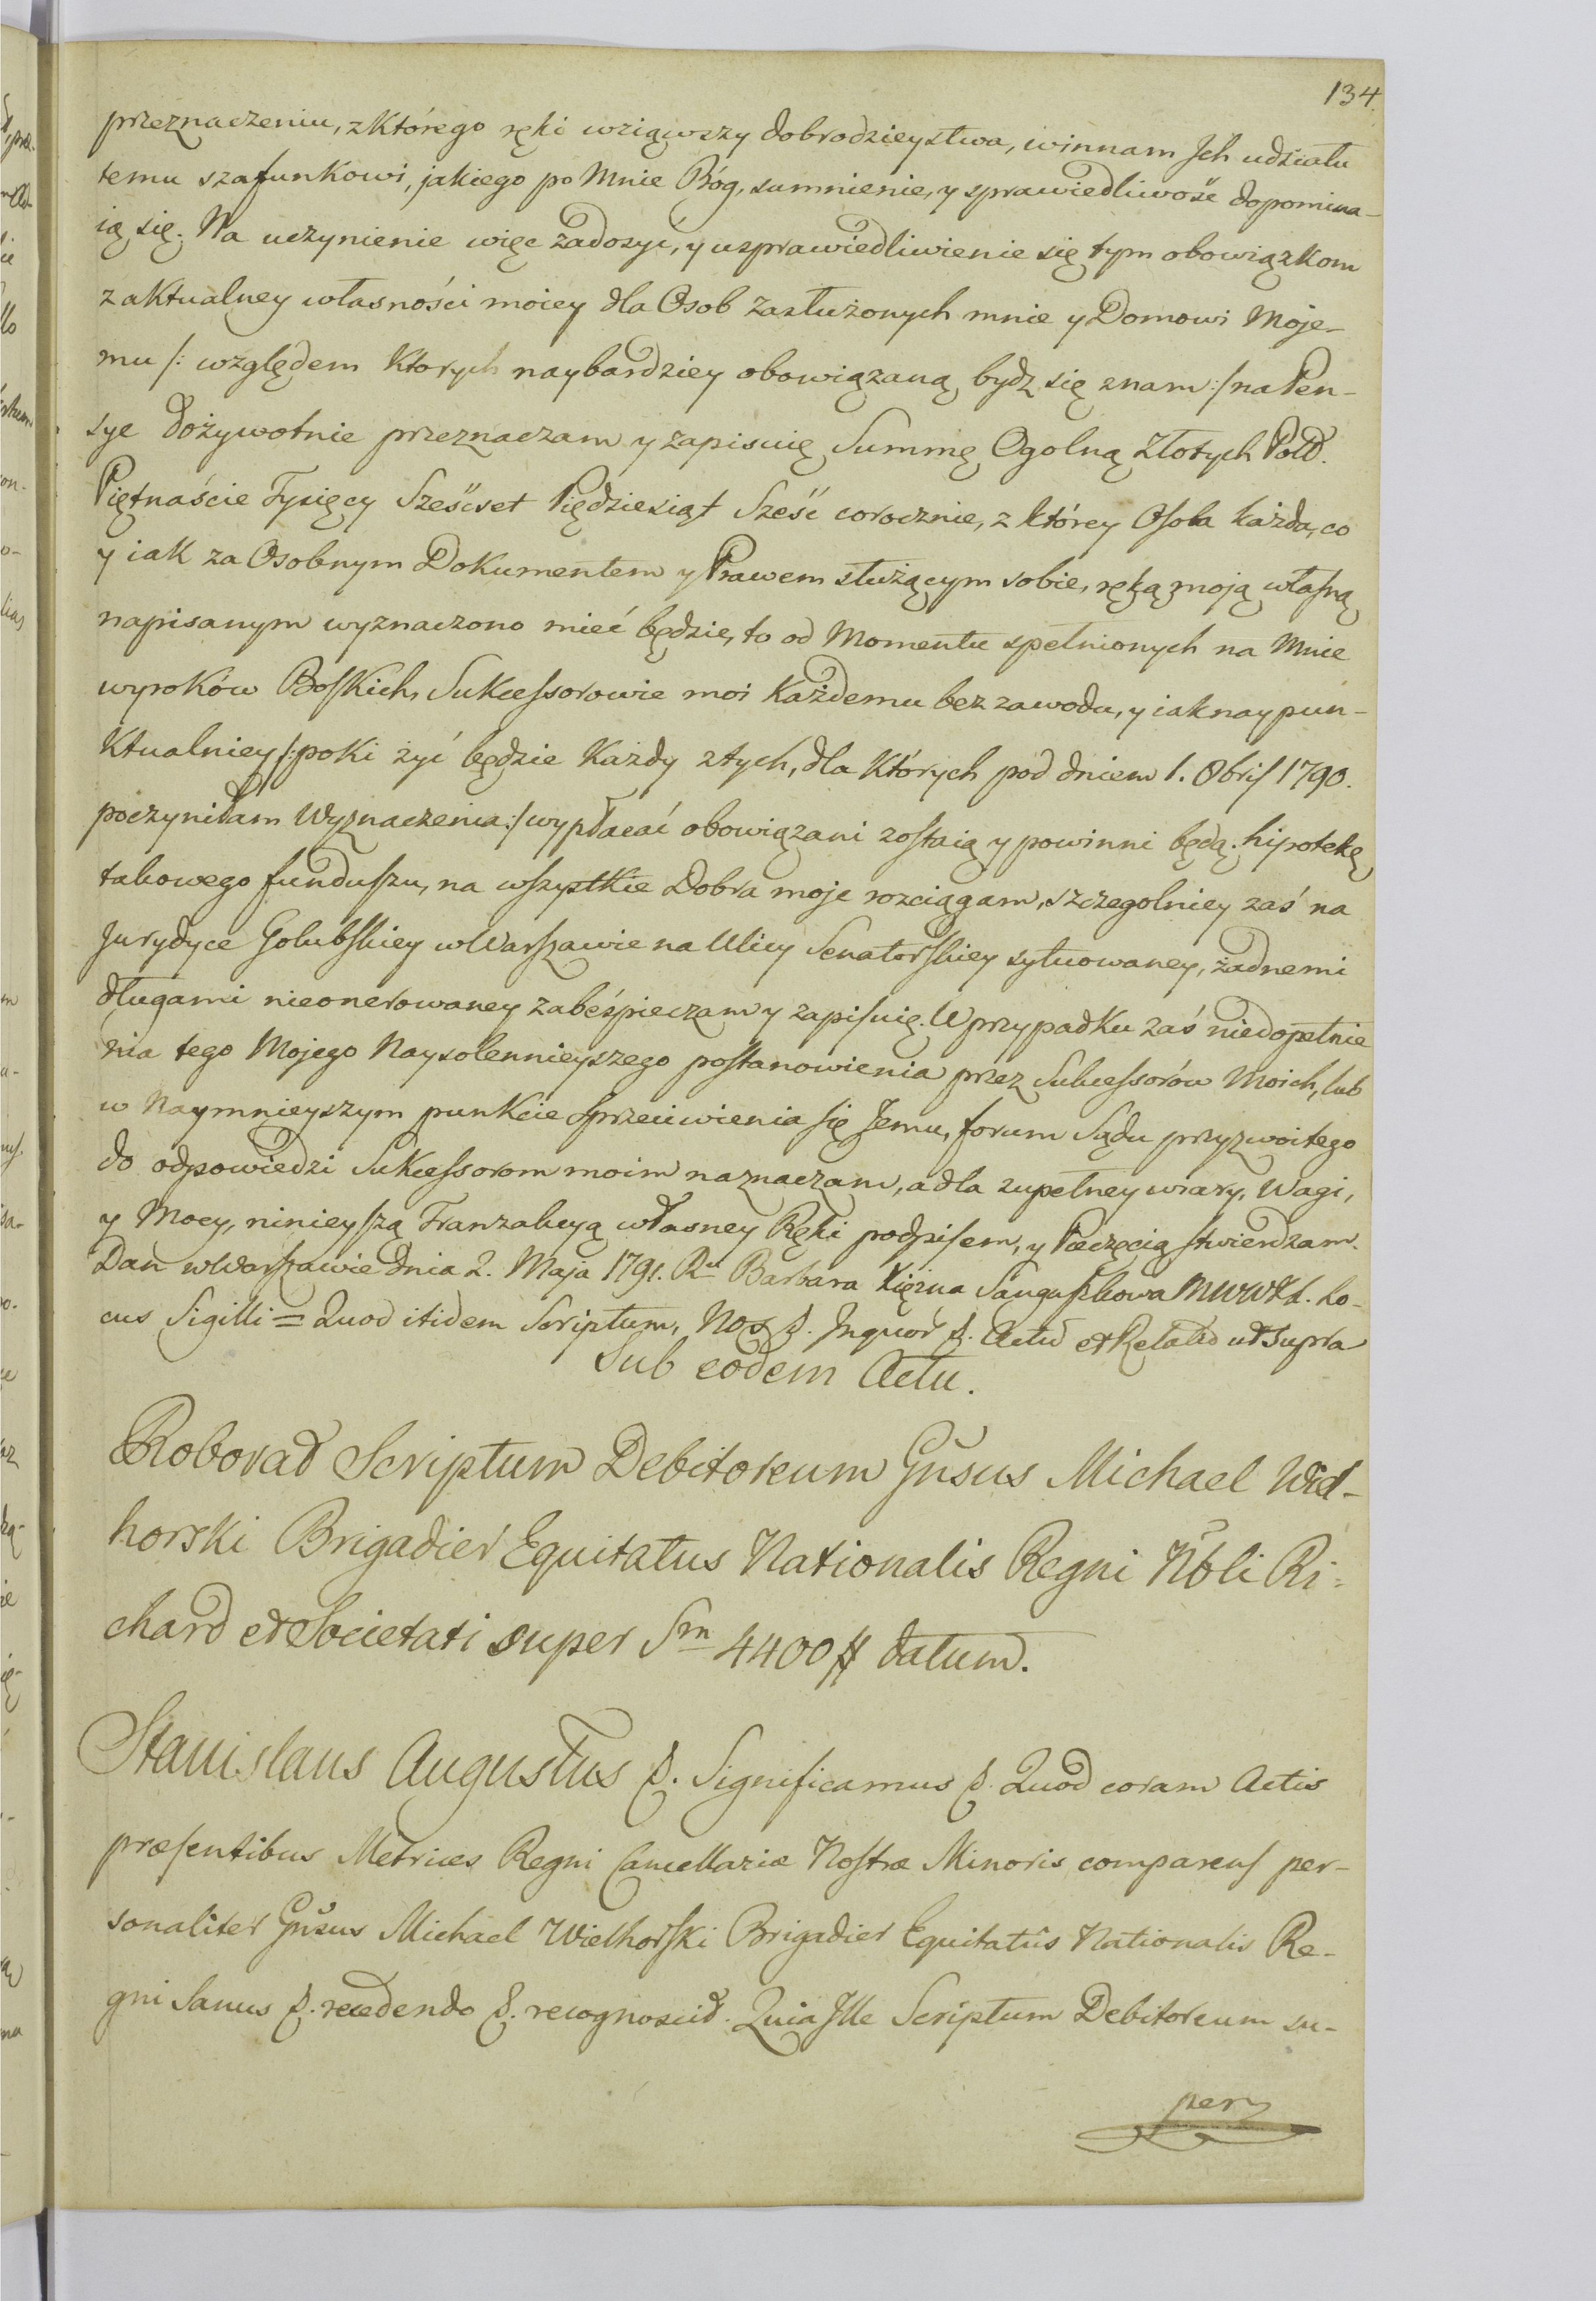 134.
przeznaczeniu, z którego ręki wziąwszy dobrodzieystwa, winnam Jch udziału
temu szafunkowi, jakiego po Mnie Bóg, sumnienie, y sprawiedliwość dopomina-
ią się. Na uczynienie więc zadosyć, y usprawiedliwienie się tym obowiązkom
z aktualney własności moiey dla Osob zasłużonych mnie y Domowi Moje-
mu /: względem ktorych naybardziey obowiązaną bydz się znam :/ na Pen-
sye dożywotnie przeznaczam y zapisuię Summę Ogolną Złotych Pold.
Piętnaście Tysięcy Sześćset Piędziesiąt Sześć corocznie, z którey Osoba każda, co
y iak za Osobnym Dokumentem y Prawem służącym sobie, ręką moją własną
napisanym wyznaczono mieć będzie, to od Momentu spełnionych na Mnie
wyroków Boskich, Sukcessorowie moi Każdemu bez zawodu, y iak naypun-
ktualniey /: poki żyć będzie Każdy z tych, dla Których pod dniem 1. Obris 1790.
poczyniłam Wyznaczenia :/ wypłacać obowiązani zostaią y powinni będą. hipotekę
takowego funduszu, na wszystkie Dobra moje rozciągam, szczegolniey zaś na
Jurydyce Golubskiey w Warszawie na Ulicy Senatorskiey sytuowaney, żadnemi
długami nieonerowaney zabeśpieczam y zapisuię. W przypadku zaś niedopełnie
nia tego Mojego Naysolennieyszego postanowienia przez Sukcessorów Moich, lub
w Naymnieyszym punkcie Sprzeciwienia się Jemu, forum Sądu przyzwoitego
do odpowiedzi Sukcessorom moim naznaczam, a dla zupełney wiary, Wagi,
y Mocy, ninieyszą Tranzakcyą własney Ręki podpisem, y Pieczęcią stwierdzam.
Dan w Warszawie dnia 2. Maja 1791. Ru Barbara Xiężna Sanguszkowa MWWXL. Lo-
cus Sigilli = Quod itidem Scriptum, Nos &. Jnquor &. Actu et Relato ut supra
Sub eodem Actu.
Roborat Scriptum Debitoreum Gnsus Michael Wiel-
horski Brigadier Equitatus Nationalis Regni Nbli Ri-
chard et Societati super Sm 4400 # datum.
Stanislaus Augustus &. Significamus &. Quod coram Actis
præsentibus Metrices Regni Cancellariæ Nostræ Minoris comparens per-
sonaliter Gnsus Michael Wielhorski Brigadier Equitatus Nationalis Re-
gni Sanus &. recedendo &. recognoscit. Quia Jlle Scriptum Debitoreum su-
per